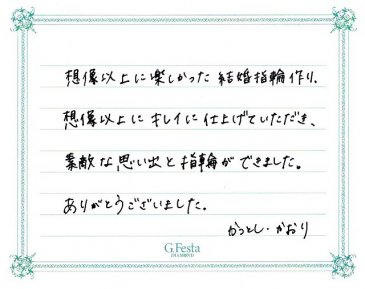 想像以上に楽しかった結婚指輪作り、
想像以上にキレイに仕上げていただき、
素敵な思い出と指輪ができました。
ありがとうございました。
かつとし・かおり
G.Festa
DIAMOND